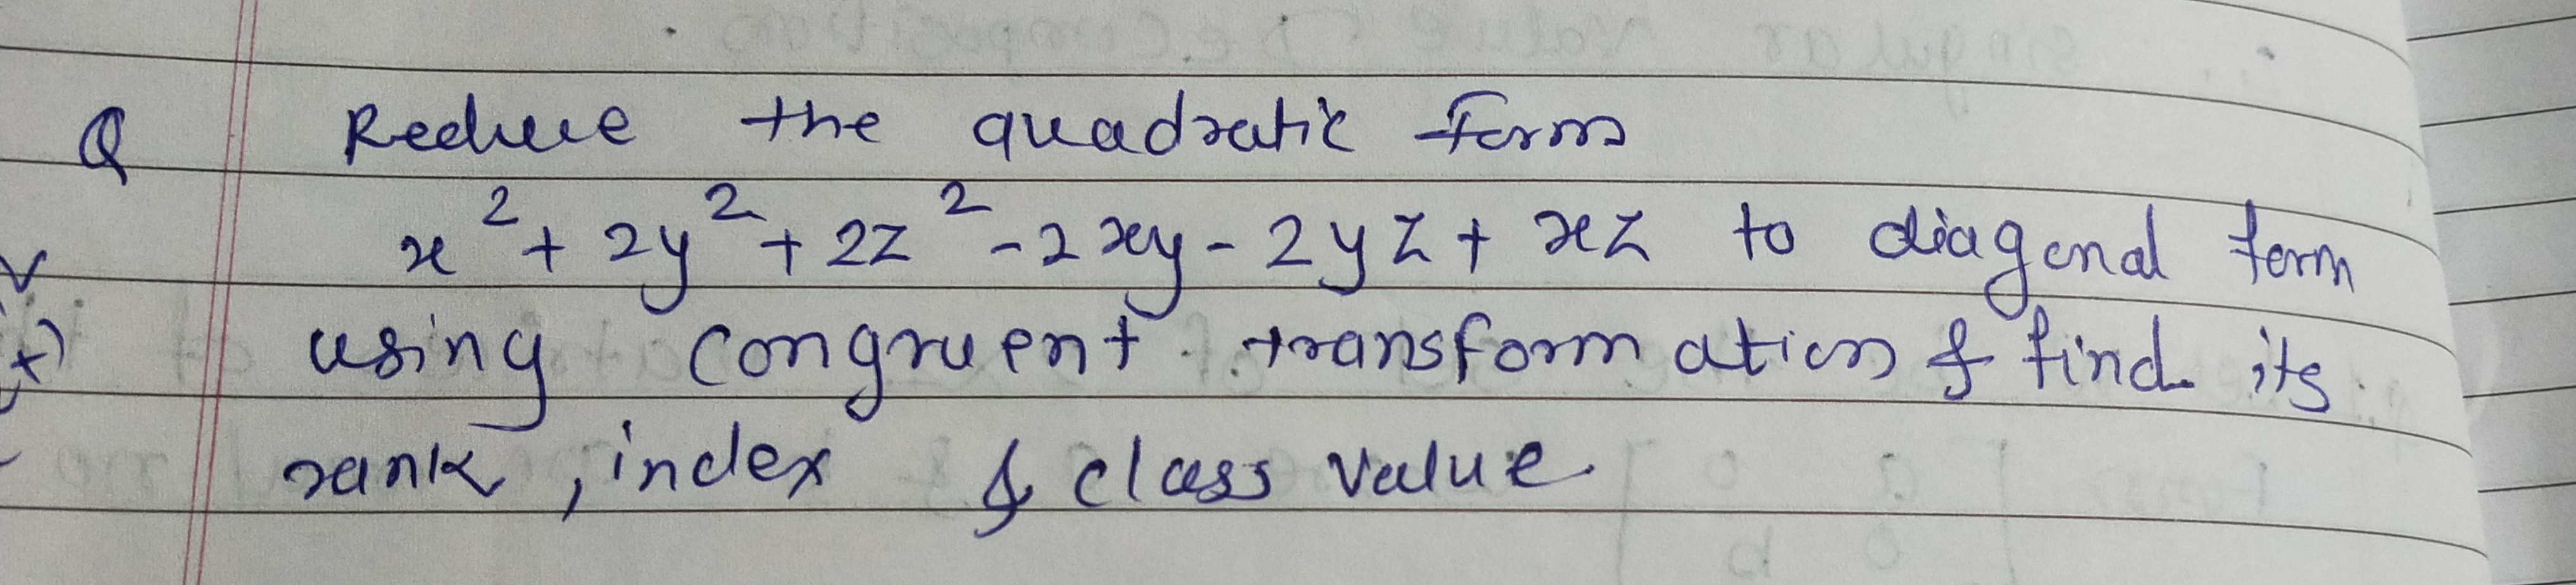 Q Reduce the quadratic form
x² + 2y² + 2z² - 2xy - 2yz + xz to diagonal form
using congruent transformation & find its
rank, index & class value